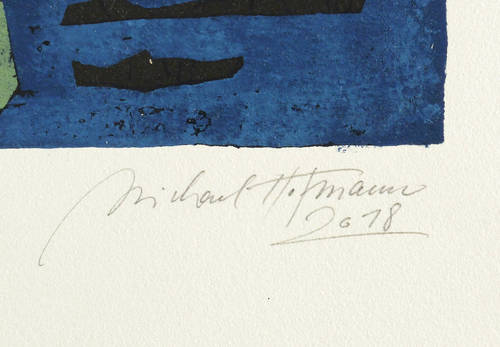 Michael Hofmann
2018